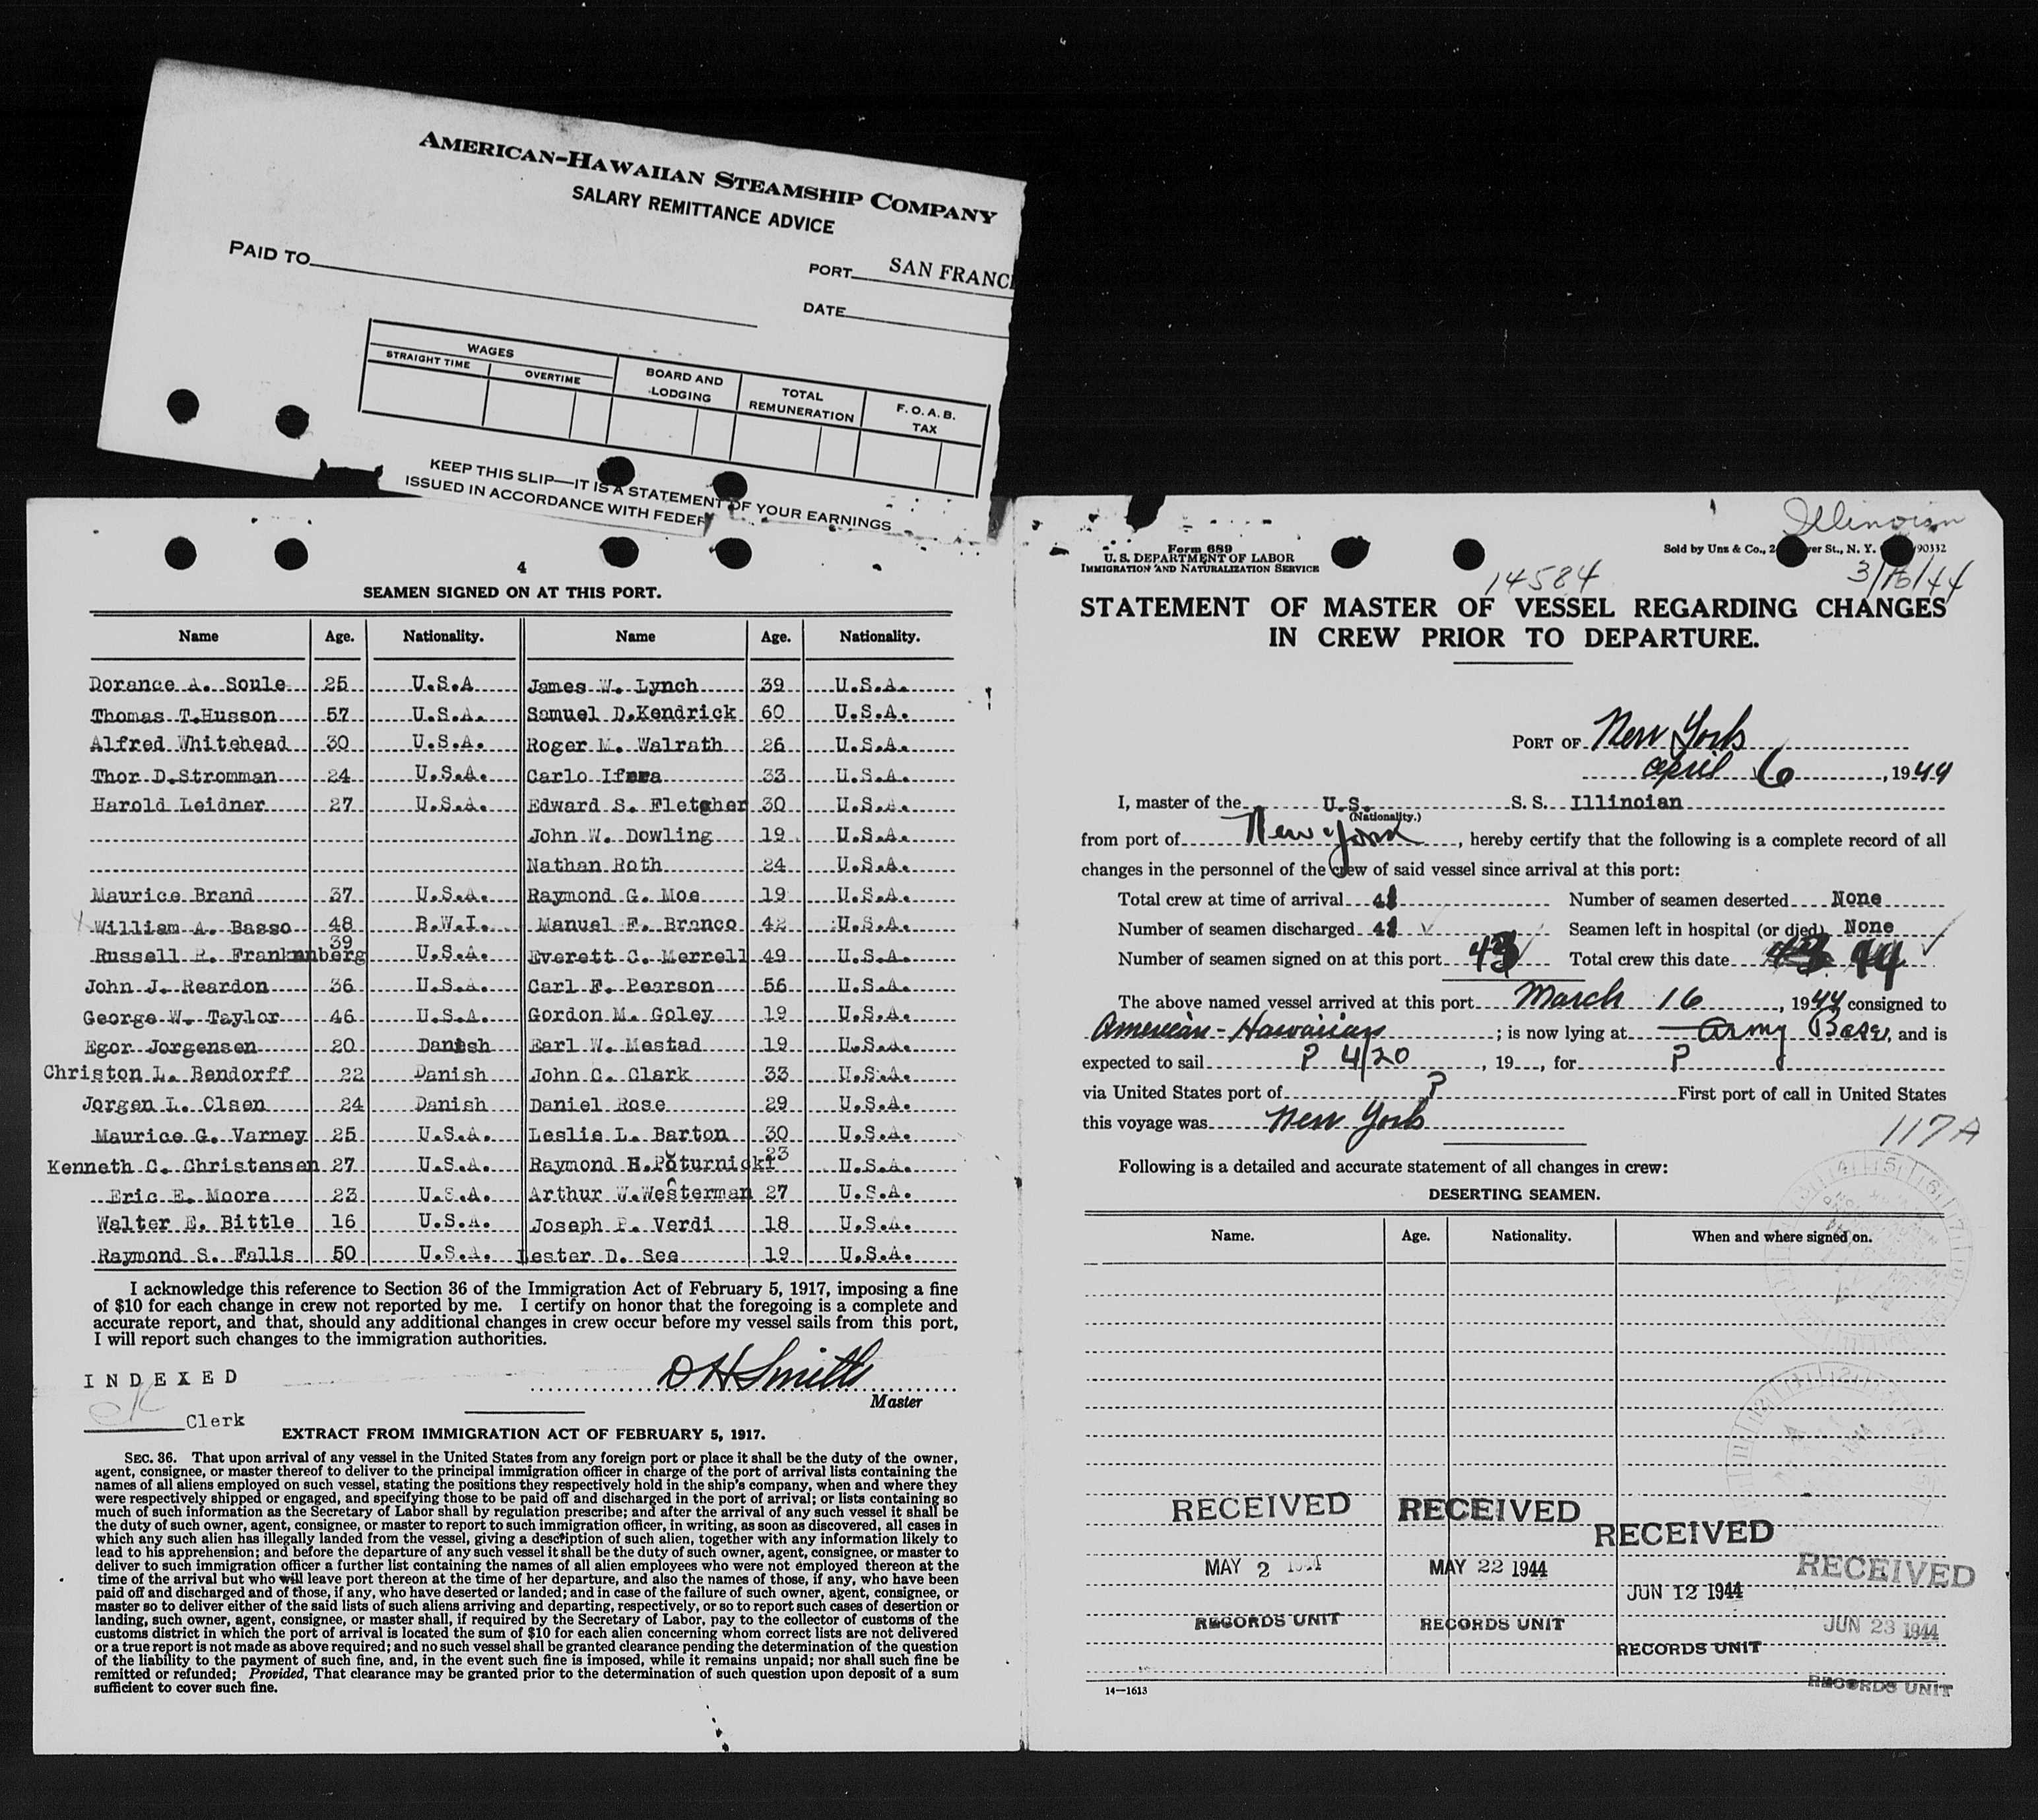 AMERICAN-HAWAIIAN STEAMSHIP COMPANY
SALARY REMITTANCE ADVICE
PAID TO
PORT SAN FRANC
DATE
WAGES
STRAIGHT TIME OVERTIME BOARD AND LODGING TOTAL REMUNERATION F. O. A. B. TAX
KEEP THIS SLIP—IT IS A STATEMENT OF YOUR EARNINGS
ISSUED IN ACCORDANCE WITH FEDER
4
SEAMEN SIGNED ON AT THIS PORT.
Name Age. Nationality. Name Age. Nationality.
Dorance A. Soule 25 U.S.A James W. Lynch 39 U.S.A.
Thomas T.Husson 57 U.S.A. Samuel D.Kendrick 60 U.S.A.
Alfred Whitehead 30 U.S.A. Roger M. Walrath 26 U.S.A.
Thor D.Stromman 24 U.S.A. Carlo 33 U.S.A.
Harold Leidner 27 U.S.A. Edward S. Fletcher 30 U.S.A.
John W. Dowling 19 U.S.A.
Nathan Roth 24 U.S.A.
Maurice Brand 37 U.S.A. Raymond G. Moe 19 U.S.A.
William A. Basso 48 B.W.I. Manuel F. Branco 42 U.S.A.
Russell R. Franknnberg 39 U.S.A. Everett C. Merrell 49 U.S.A.
John J. Reardon 36 U.S.A. Carl F. Pearson 56 U.S.A.
George W. Taylor 46 U.S.A. Gordon M. Goley 19 U.S.A.
Egor Jorgensen 20 Danish Earl W. Mestad 19 U.S.A.
Christon L. Bendorff 22 Danish John C. Clark 33 U.S.A.
Jorgen L. Olsen 24 Danish Daniel Rose 29 U.S.A.
Maurice G. Varney 25 U.S.A. Leslie L. Barton 30 U.S.A.
Kenneth C. Christensen 27 U.S.A. Raymond H.Poturnicki 23 U.S.A.
Eric E. Moore 23 U.S.A. Arthur W.Westerman 27 U.S.A.
Walter E. Bittle 16 U.S.A. Joseph P. Verdi 18 U.S.A.
Raymond S. Falls 50 U.S.A. Lester D. See 19 U.S.A.
I acknowledge this reference to Section 36 of the Immigration Act of February 5, 1917, imposing a fine
of $10 for each change in crew not reported by me. I certify on honor that the foregoing is a complete and
accurate report, and that, should any additional changes in crew occur before my vessel sails from this port,
I will report such changes to the immigration authorities.
INDEXED
D H Smith
Master
Clerk
EXTRACT FROM IMMIGRATION ACT OF FEBRUARY 5, 1917.
SEC. 36. That upon arrival of any vessel in the United States from any foreign port or place it shall be the duty of the owner,
agent, consignee, or master thereof to deliver to the principal immigration officer in charge of the port of arrival lists containing the
names of all aliens employed on such vessel, stating the positions they respectively hold in the ship's company, when and where they
were respectively shipped or engaged, and specifying those to be paid off and discharged in the port of arrival; or lists containing so
much of such information as the Secretary of Labor shall by regulation prescribe; and after the arrival of any such vessel it shall be
the duty of such owner, agent, consignee, or master to report to such immigration officer, in writing, as soon as discovered, all cases in
which any such alien has illegally landed from the vessel, giving a description of such alien, together with any information likely to
lead to his apprehension; and before the departure of any such vessel it shall be the duty of such owner, agent, consignee, or master to
deliver to such immigration officer a further list containing the names of all alien employees who were not employed thereon at the
time of the arrival but who will leave port thereon at the time of her departure, and also the names of those, if any, who have been
paid off and discharged and of those, if any, who have deserted or landed; and in case of the failure of such owner, agent, consignee, or
master so to deliver either of the said lists of such aliens arriving and departing, respectively, or so to report such cases of desertion or
landing, such owner, agent, consignee, or master shall, if required by the Secretary of Labor, pay to the collector of customs of the
customs district in which the port of arrival is located the sum of $10 for each alien concerning whom correct lists are not delivered
or a true report is not made as above required; and no such vessel shall be granted clearance pending the determination of the question
of the liability to the payment of such fine, and, in the event such fine is imposed, while it remains unpaid; nor shall such fine be
remitted or refunded; Provided, That clearance may be granted prior to the determination of such question upon deposit of a sum
sufficient to cover such fine.
Illinoian
Form 689
U. S. DEPARTMENT OF LABOR
IMMIGRATION AND NATURALIZATION SERVICE
Sold by Unz & Co., 2 ver St., N. Y. 90332
14584
3/16/44
STATEMENT OF MASTER OF VESSEL REGARDING CHANGES
IN CREW PRIOR TO DEPARTURE.
PORT OF New York
april 6, 1944
I, master of the U.S. S. S. Illinoian
(Nationality.)
from port of New York, hereby certify that the following is a complete record of all
changes in the personnel of the crew of said vessel since arrival at this port:
Total crew at time of arrival Number of seamen deserted None
Number of seamen discharged Seamen left in hospital (or died) None
Number of seamen signed on at this port 43 Total crew this date 44
The above named vessel arrived at this port March 16, 1944 consigned to
American-Hawaiian; is now lying at Army Base, and is
expected to sail ? 4/20, 19 , for ?
via United States port of ? First port of call in United States
this voyage was New York
117A
Following is a detailed and accurate statement of all changes in crew:
DESERTING SEAMEN.
Name. Age. Nationality. When and where signed on.
RECEIVED RECEIVED RECEIVED RECEIVED
MAY 2 1944 MAY 22 1944 JUN 12 1944 JUN 23 1944
RECORDS UNIT RECORDS UNIT RECORDS UNIT RECORDS UNIT
14—1613